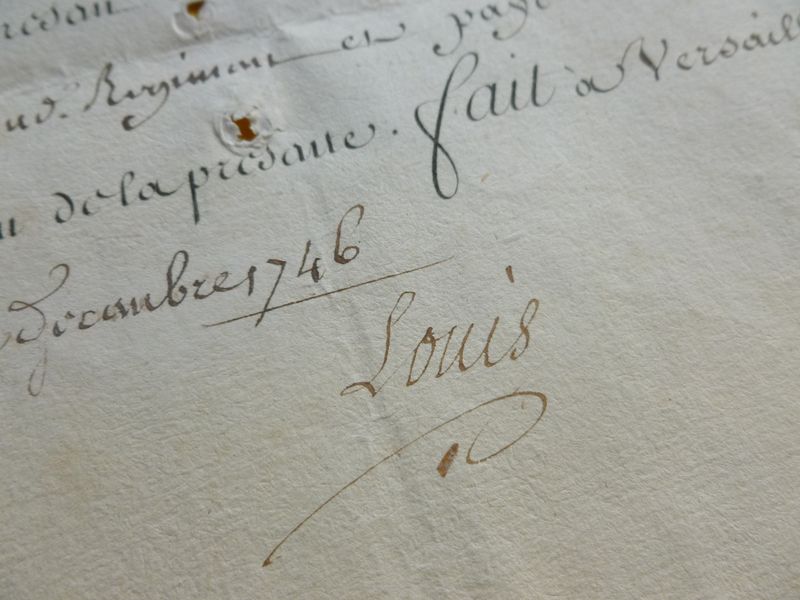 Regiment et paye
de la presante. fait a Versaill
decembre 1746
Louis